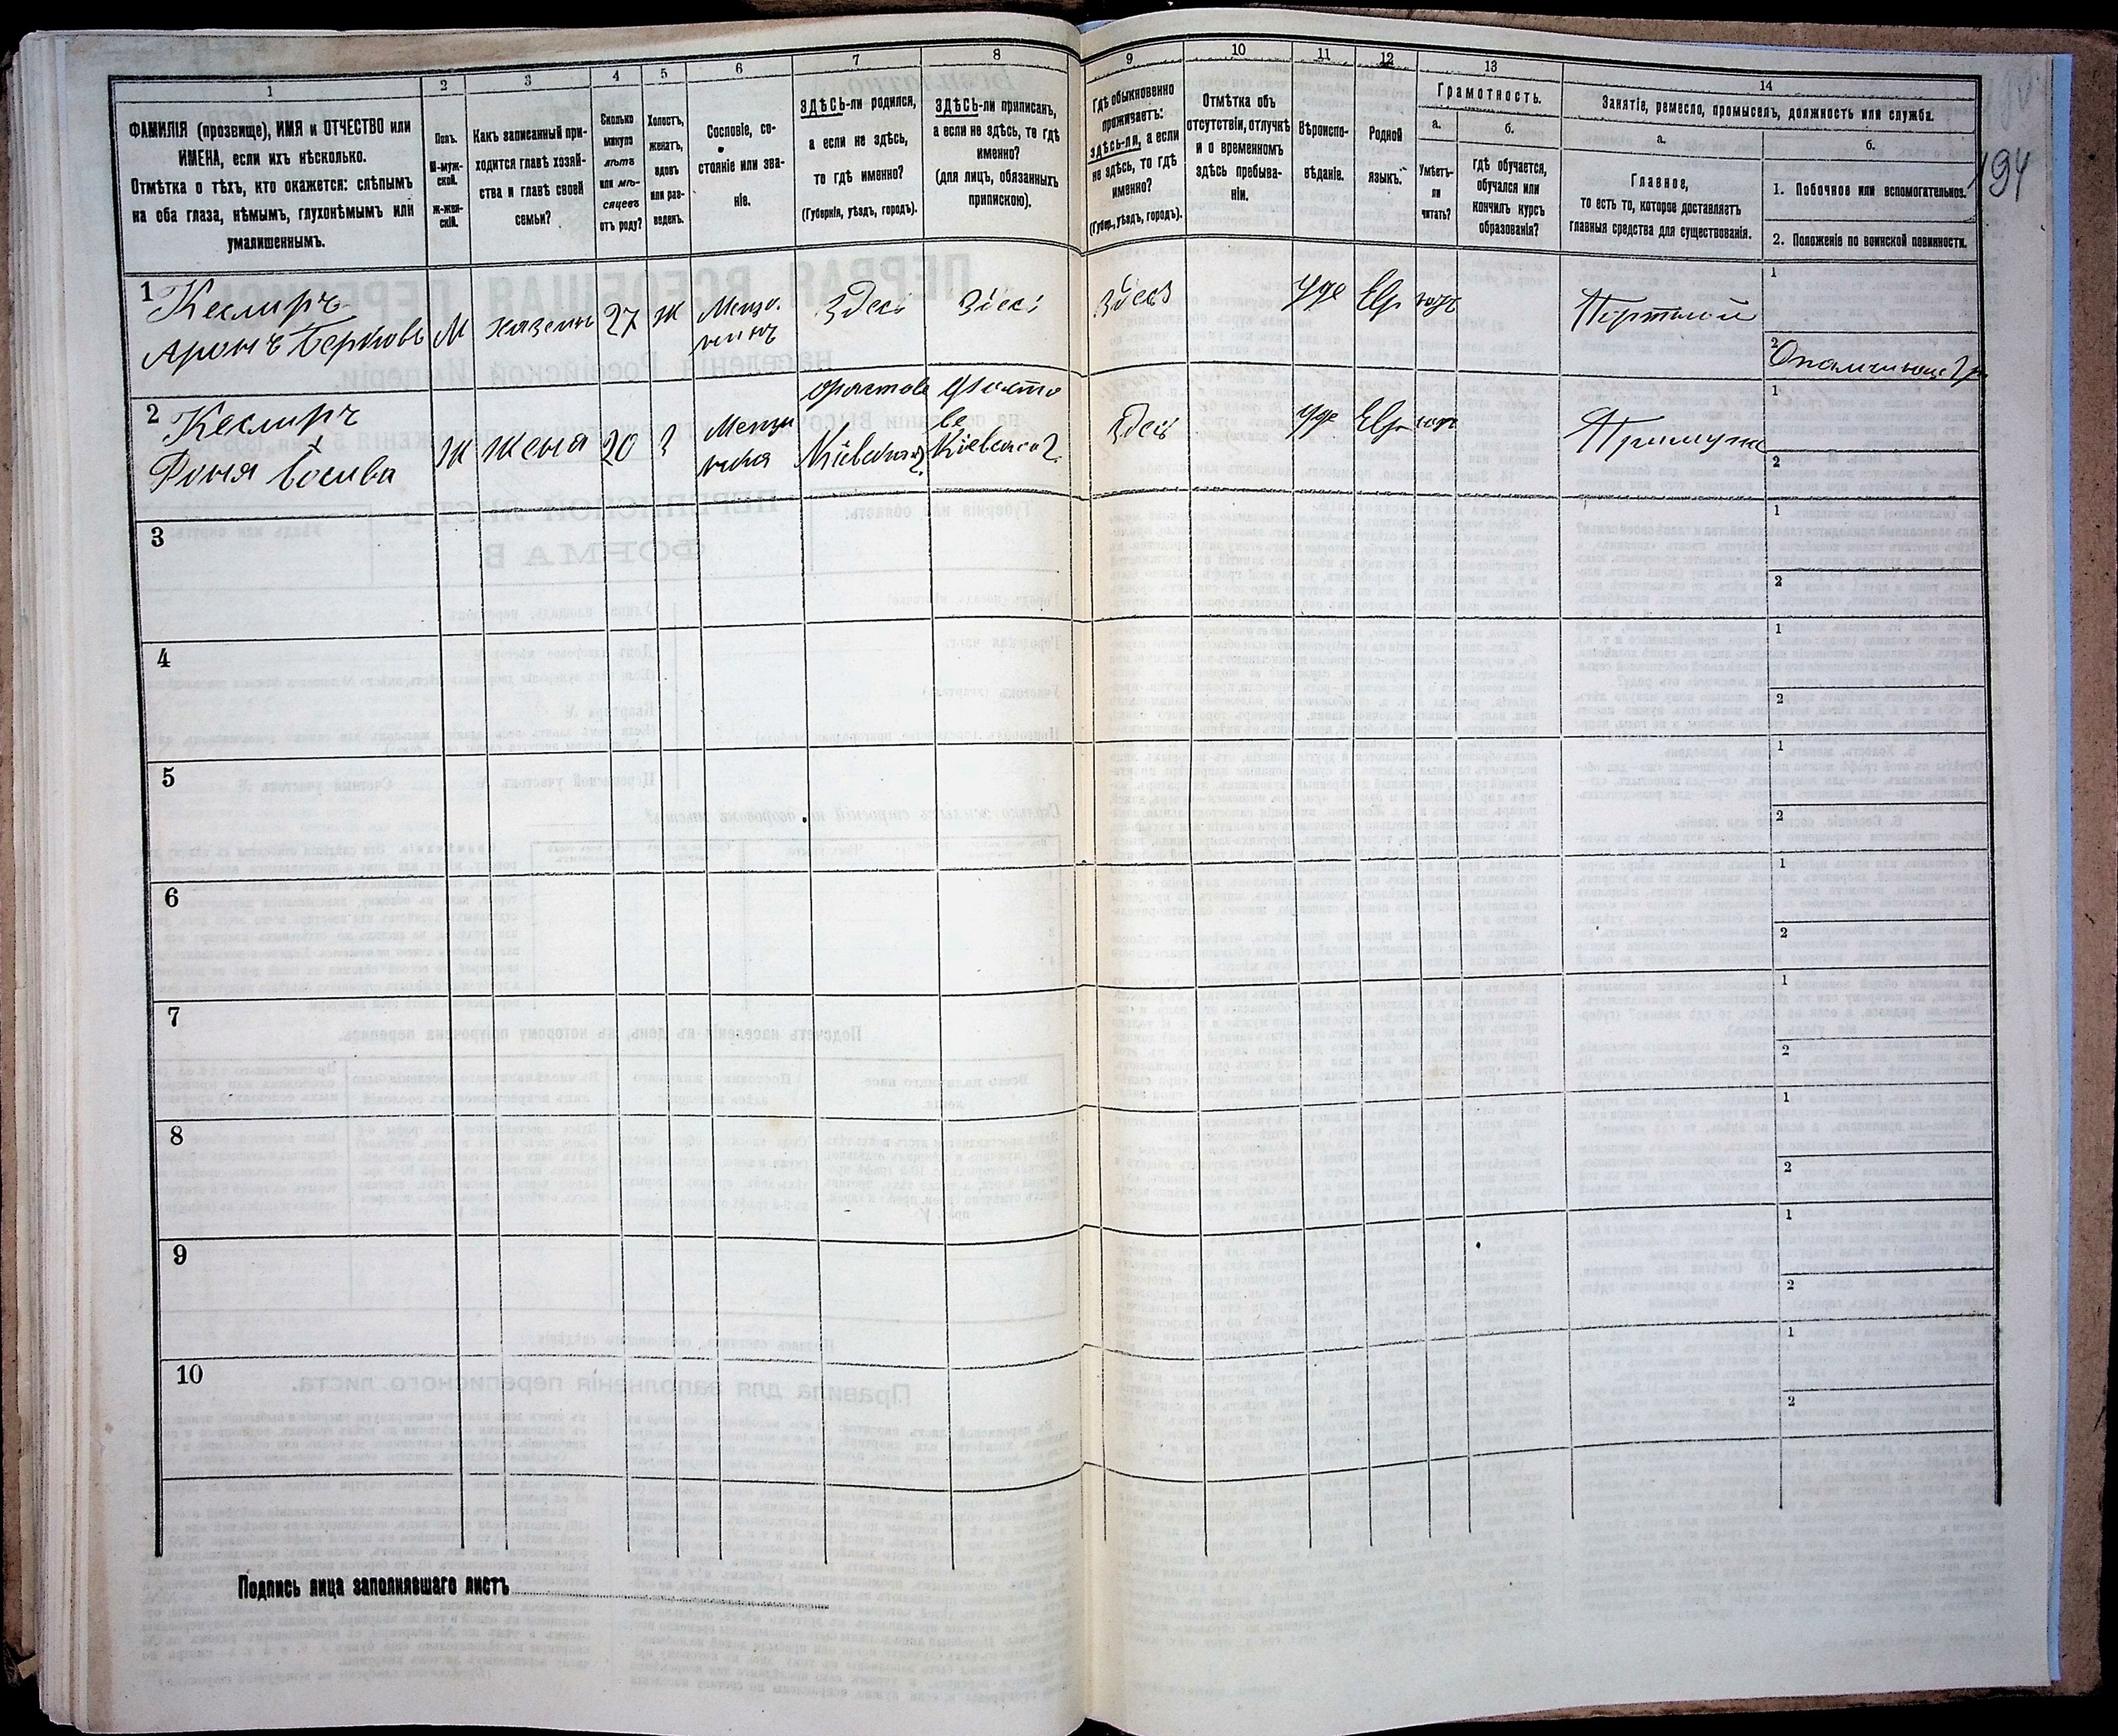 1
ФАМИЛІЯ (прозвище), ИМЯ и ОТЧЕСТВО или
ИМЕНА, если ихъ нѣсколько.
Отмѣтка о тѣхъ, кто окажется: слѣпымъ
на оба глаза, нѣмымъ, глухонѣмымъ или
умалишеннымъ.
2
Полъ.
М-муж-
ской.
Ж-жен-
скій.
3
Какъ записанный при-
ходится главѣ хозяй-
ства и главѣ своей
семьи?
4
Сколько
минуло
лѣтъ
или мѣ-
сяцевъ
отъ роду?
5
Холостъ,
женатъ,
вдовъ
или раз-
веденъ.
6
Сословіе, со-
стояніе или зва-
ніе.
7
ЗДѢСЬ-ли родился,
а если не здѣсь,
то гдѣ именно?
(Губернія, уѣздъ, городъ).
8
ЗДѢСЬ-ли приписанъ,
а если не здѣсь, то гдѣ
именно?
(для лицъ, обязанныхъ
припискою).
9
Гдѣ обыкновенно
проживаетъ:
здѣсь-ли, а если
не здѣсь, то гдѣ
именно?
(Губер., уѣздъ, городъ).
10
Отмѣтка объ
отсутствіи, отлучкѣ
и о временномъ
здѣсь пребыва-
ніи.
11
Вѣроиспо-
вѣданіе.
12
Родной
языкъ.
13
Грамотность.
а.
Умѣетъ-
ли
читать?
б.
гдѣ обучается,
обучался или
кончилъ курсъ
образованія?
14
Занятіе, ремесло, промыселъ, должность или служба.
а.
Главное,
то есть то, которое доставляетъ
главныя средства для существованія.
б.
1. Побочное или вспомогательное.
2. Положеніе по воинской повинности.
194
1
Кеслиръ
Аронъ Берковъ
М
хозяинъ
27
ж
Мещан.
Здесь
Здесь
Здесь
Іуде
Евр
Портной
1
2
2
Кеслиръ
Ж
жена
20
З
Кіевской г.
Кіевской г.
Здесь
Іуде
Евр
При муже
1
2
3
1
2
4
1
2
5
1
2
6
1
2
7
1
2
8
1
2
9
1
2
10
1
2
Подпись лица заполнявшаго листъ